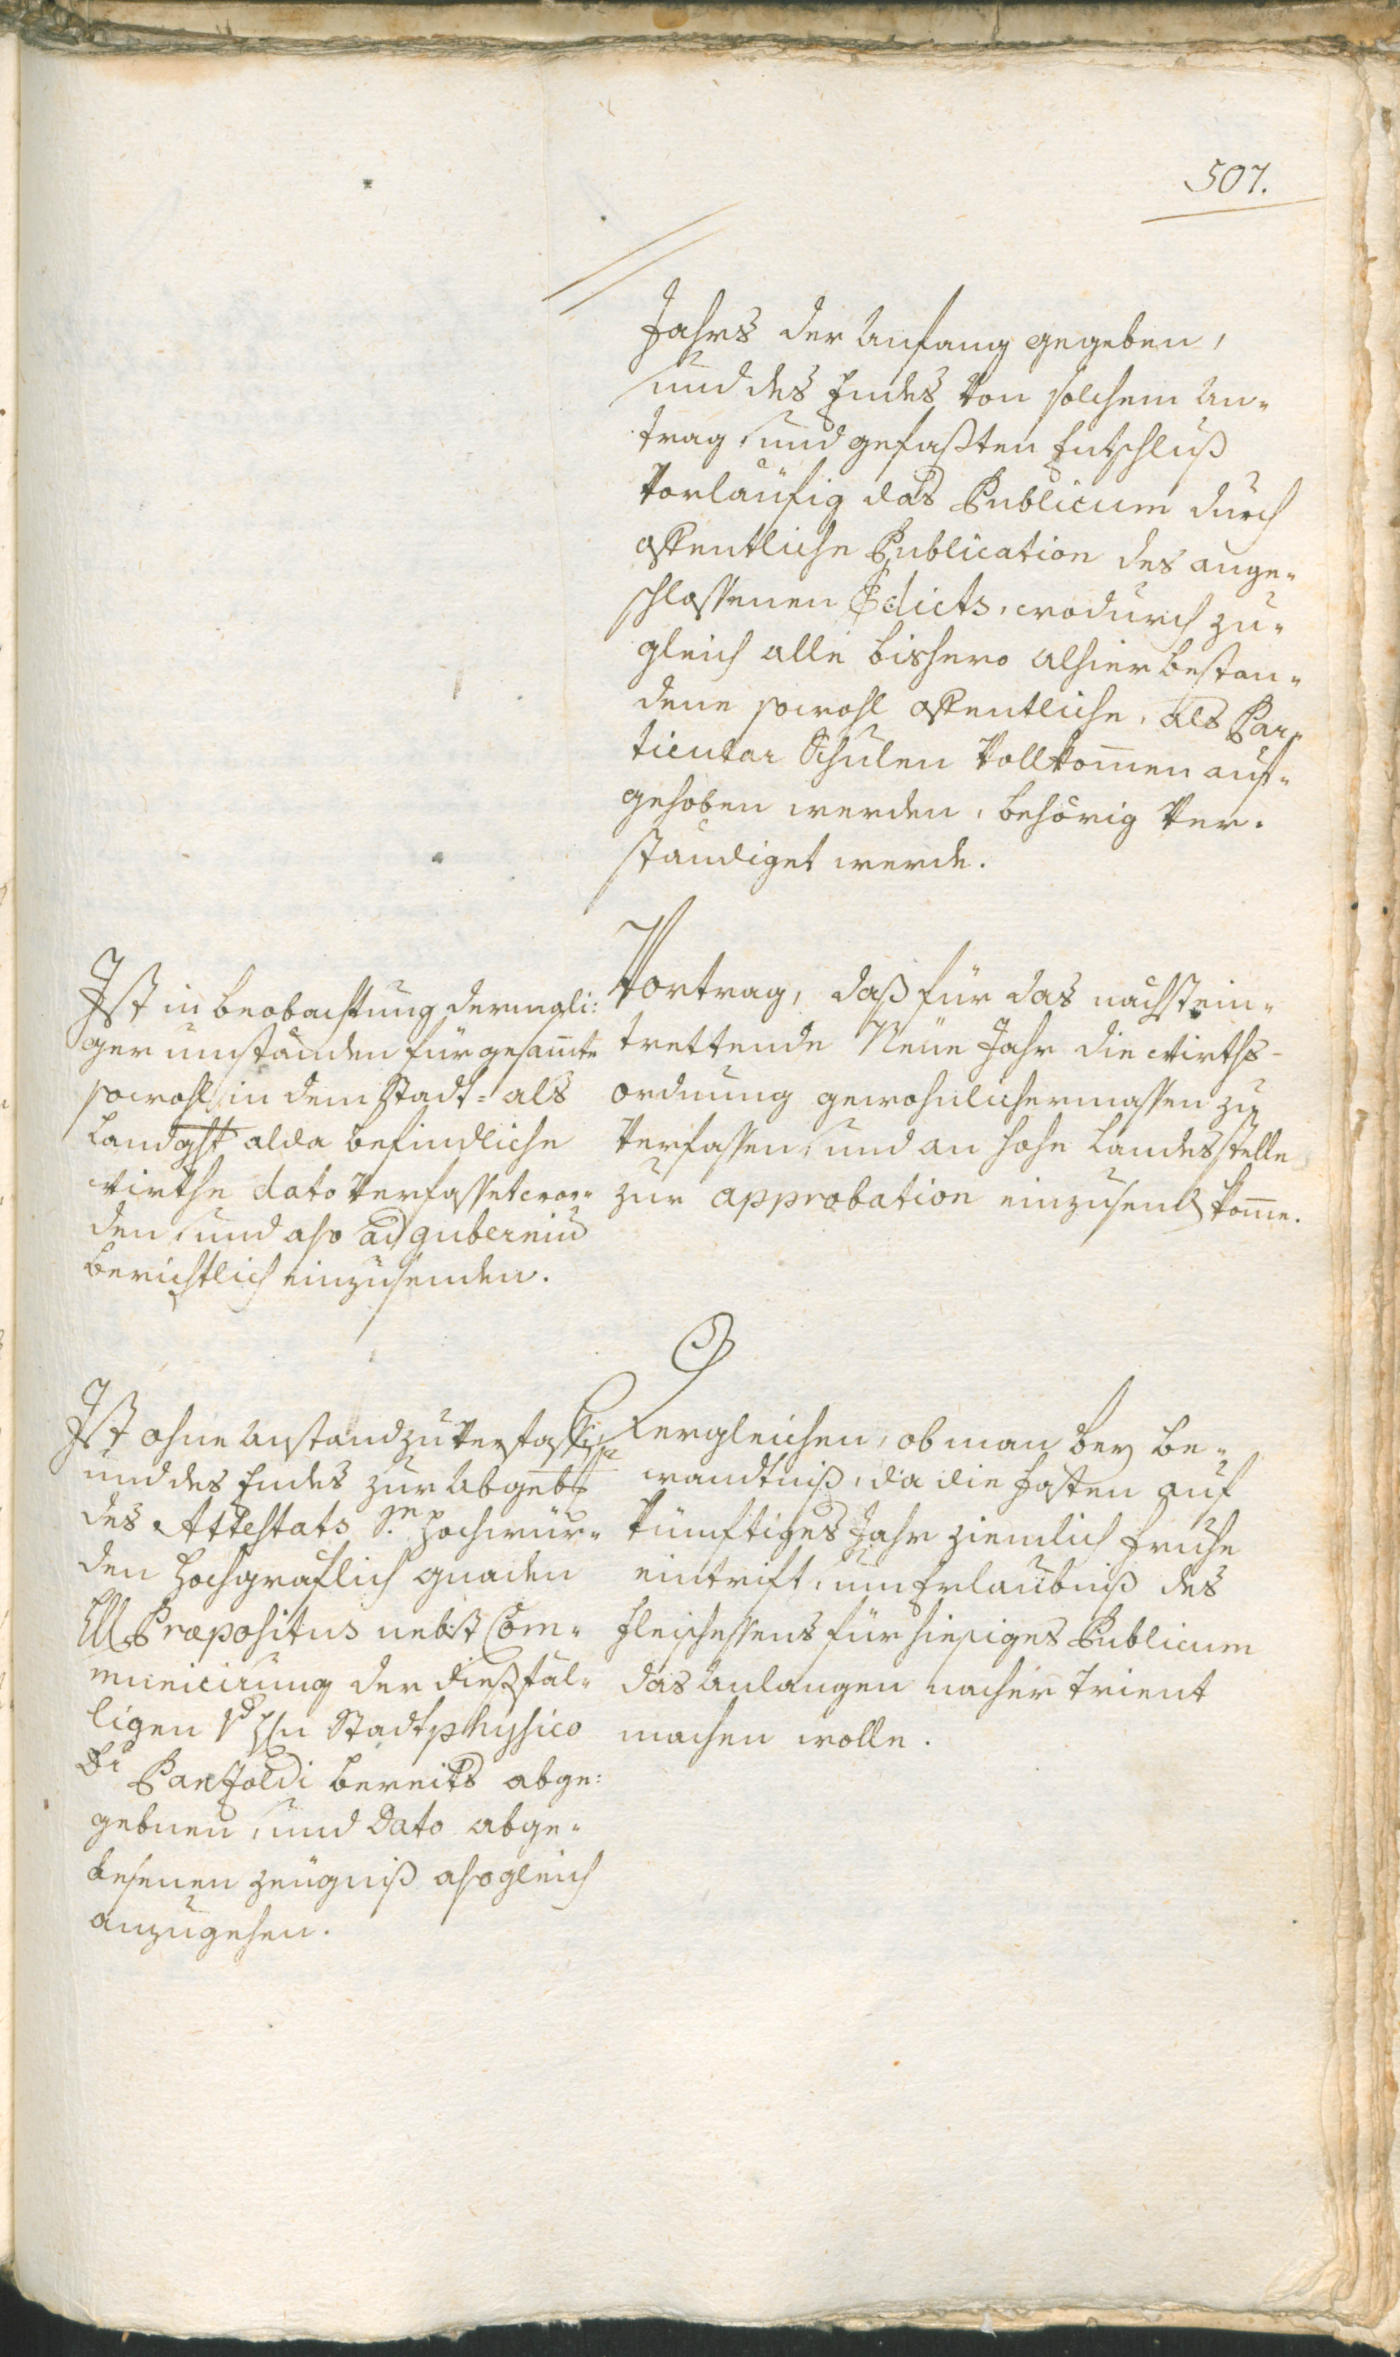 507.
Jahrs der Anfang gegeben,
und des Endes von solchem An-
trag, und gefaßten Entschluß
vorläufig das Publicum durch
offentliche Publication des ange-
schlossenen Edicts, wodurch zu-
gleich alle bishero alhier bestan-
dene sowohl offentliche, als Par-
ticular Schulen vollkom̄en auf-
gehoben werden, behörig ver-
ständiget werde.
Ist in beobachtung dermali:
ger umständen für gesam̄te
sowohl in dem Stadt- als
Landght alda befindliche
wirthe dato verfasset wor-
den, und also ad guberniū
berichtlich einzusenden.
Vortrag, daß für das nächstein-
trettende Neue Jahr die wirths-
ordnung gewohnlichermassen zu
verfassen, und an hohe Landesstelle
zur approbation einzusend kom̄e.
Ist ohne Anstand zu verfassen
und des Endes zur Abgeb
des Attestats Se Hochwür-
den Hochgräflich gnaden
H Præpositus nebst Com-
municirung der dießfäl-
ligen Stadtphysico
Dr bereits abge-
gebnen, und Dato abge-
lesenen zeugniß also gleich
anzugehen.
Dergleichen, ob man bey be-
wandtniß, da die Fasten auf
künftiges Jahr ziemlich fruhe
eintrift, um Erlaubniß des
Fleischessens für hiesiges Publicum
das Anlangen nacher Trient
machen wolle.